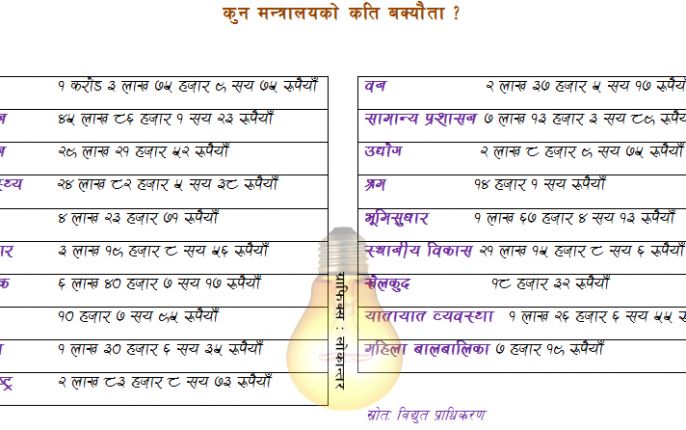 कुन मन्त्रालयको कति बक्यौता ?
१ करोड ३ लाख ७५ हजार ९ सय ७५ रूपैयाँ
४५ लाख ८६ हजार १ सय २३ रूपैयाँ
२९ लाख २१ हजार ५२ रूपैयाँ
स्थ्य २४ लाख ८२ हजार ५ सय ३८ रूपैयाँ
४ लाख २३ हजार ७१ रूपैयाँ
ार ३ लाख १९ हजार ८ सय ५६ रूपैयाँ
क ६ लाख ४० हजार ७ सय १७ रूपैयाँ
१० हजार ७ सय ९५ रूपैयाँ
१ लाख ३० हजार ६ सय ३५ रूपैयाँ
ष्ट्र २ लाख ८३ हजार ८ सय ७३ रूपैयाँ
वन २ लाख ३७ हजार ५ सय १७ रूपैयाँ
सामान्य प्रशासन ७ लाख १३ हजार ३ सय ८९ रूपैयाँ
उद्योग २ लाख ८ हजार ९ सय ७५ रूपैयाँ
श्रम १४ हजार १ सय रूपैयाँ
भूमिसुधार १ लाख ६७ हजार ४ सय १३ रूपैयाँ
स्थानीय विकास २१ लाख १५ हजार ८ सय ६ रूपैयाँ
खेलकुद १८ हजार ३२ रूपैयाँ
यातायात व्यवस्था १ लाख २६ हजार ६ सय ५५
महिला बालबालिका ७ हजार १९ रूपैयाँ
ग्राफिक्स : लोकान्तर
स्रोतः विद्युत प्राधिकरण